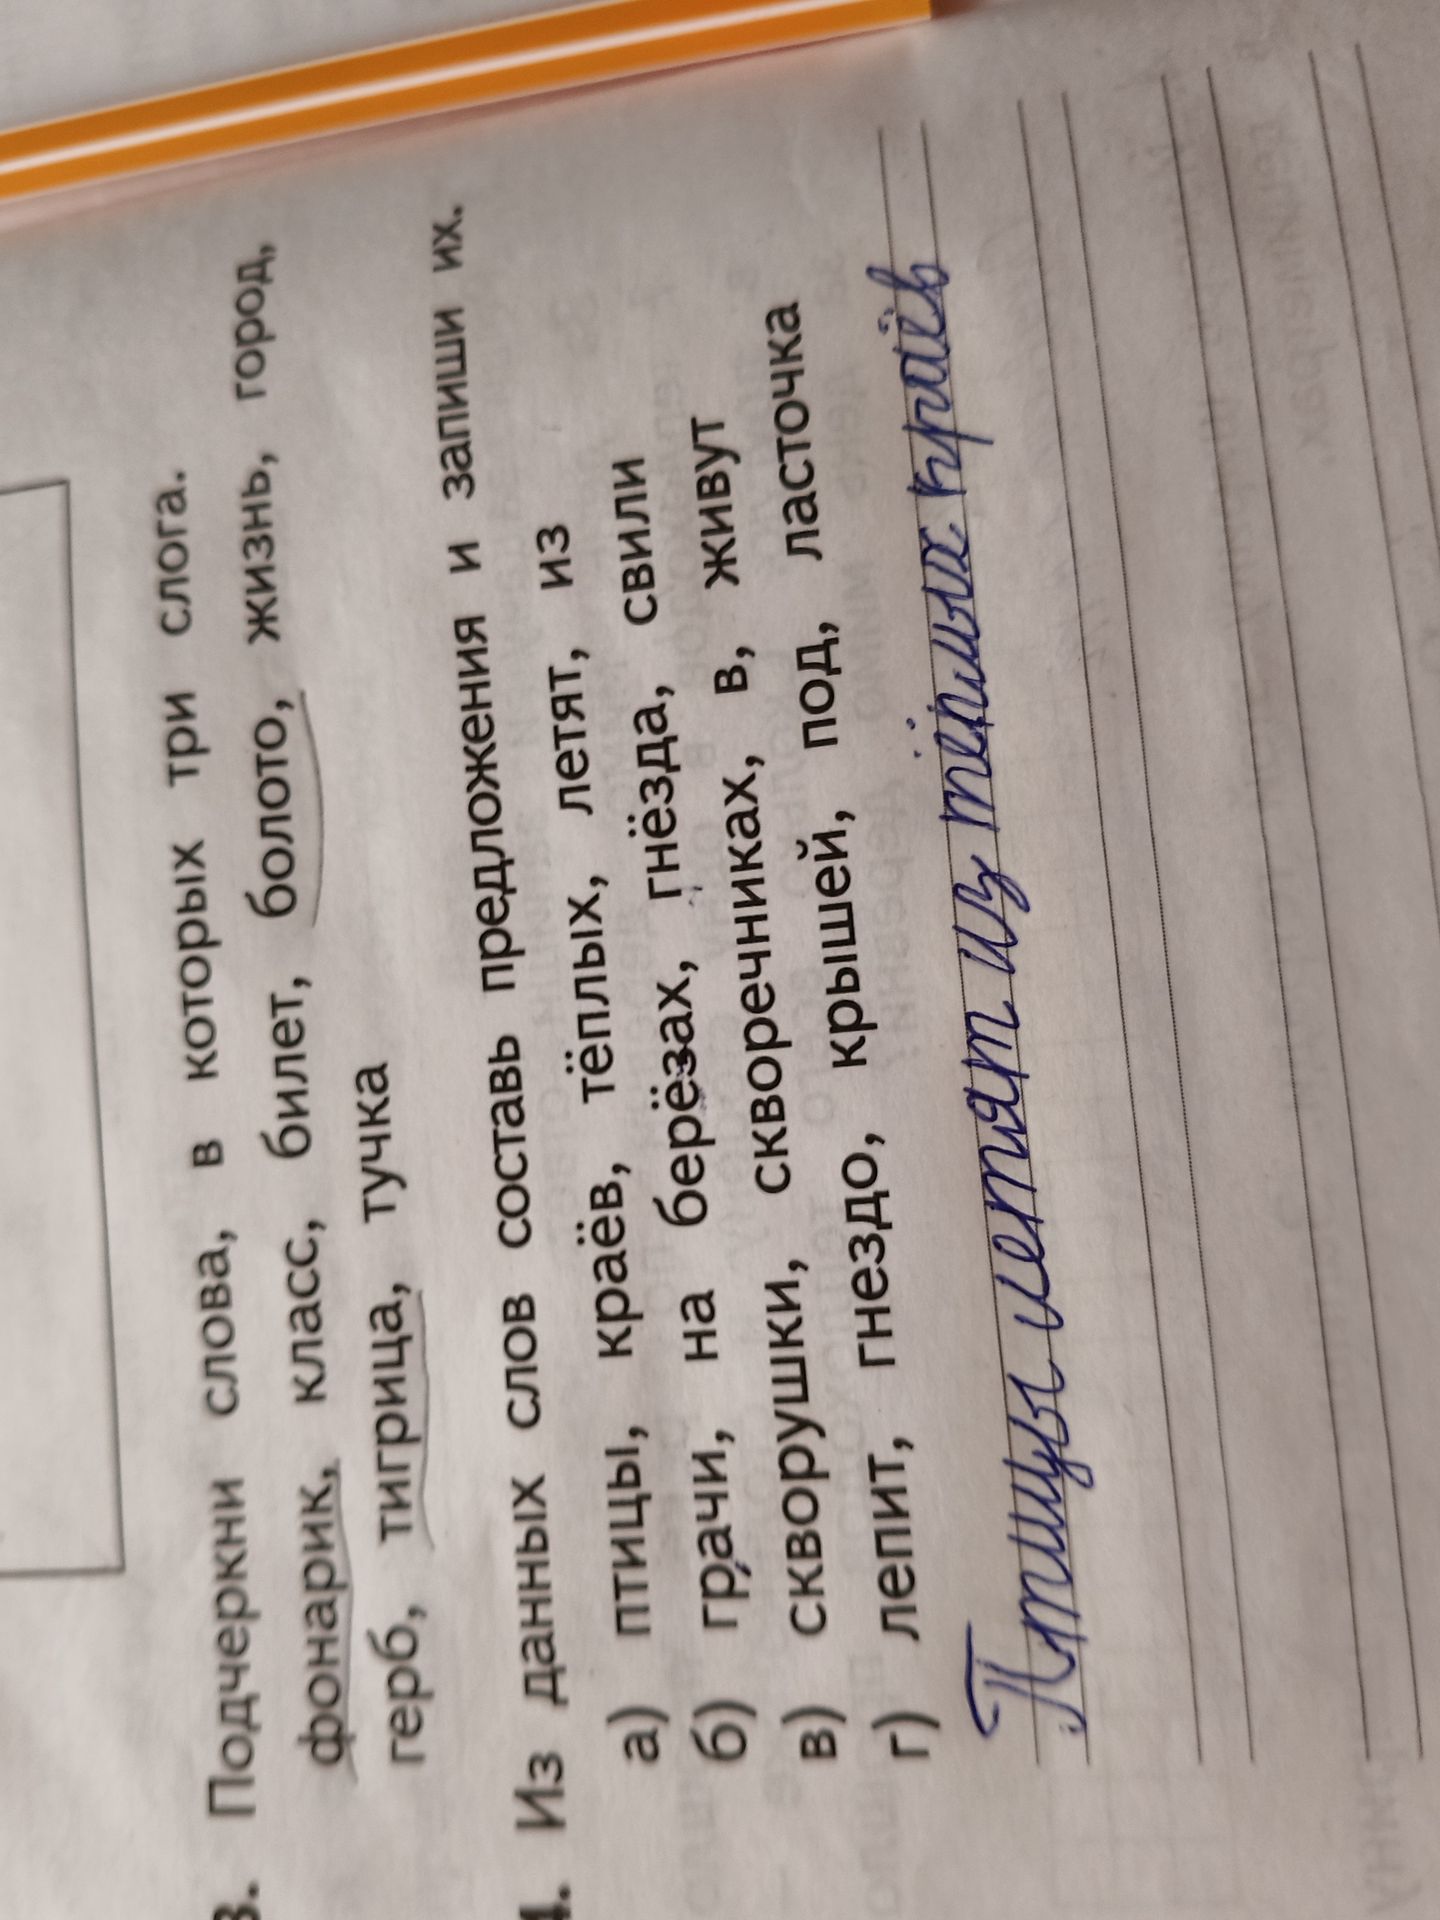 3. Подчеркни слова, в которых три слога.
фонарик, класс, билет, болото, жизнь, город,
герб, тигрица, тучка
4. Из данных слов составь предложения и запиши их.
а) птицы, краёв, тёплых, летят, из
б) грачи, на берёзах, гнёзда, свили
в) скворушки, скворечниках, в, живут
г) лепит, гнездо, крышей, под, ласточка
Птицы летят из тёплых краёв